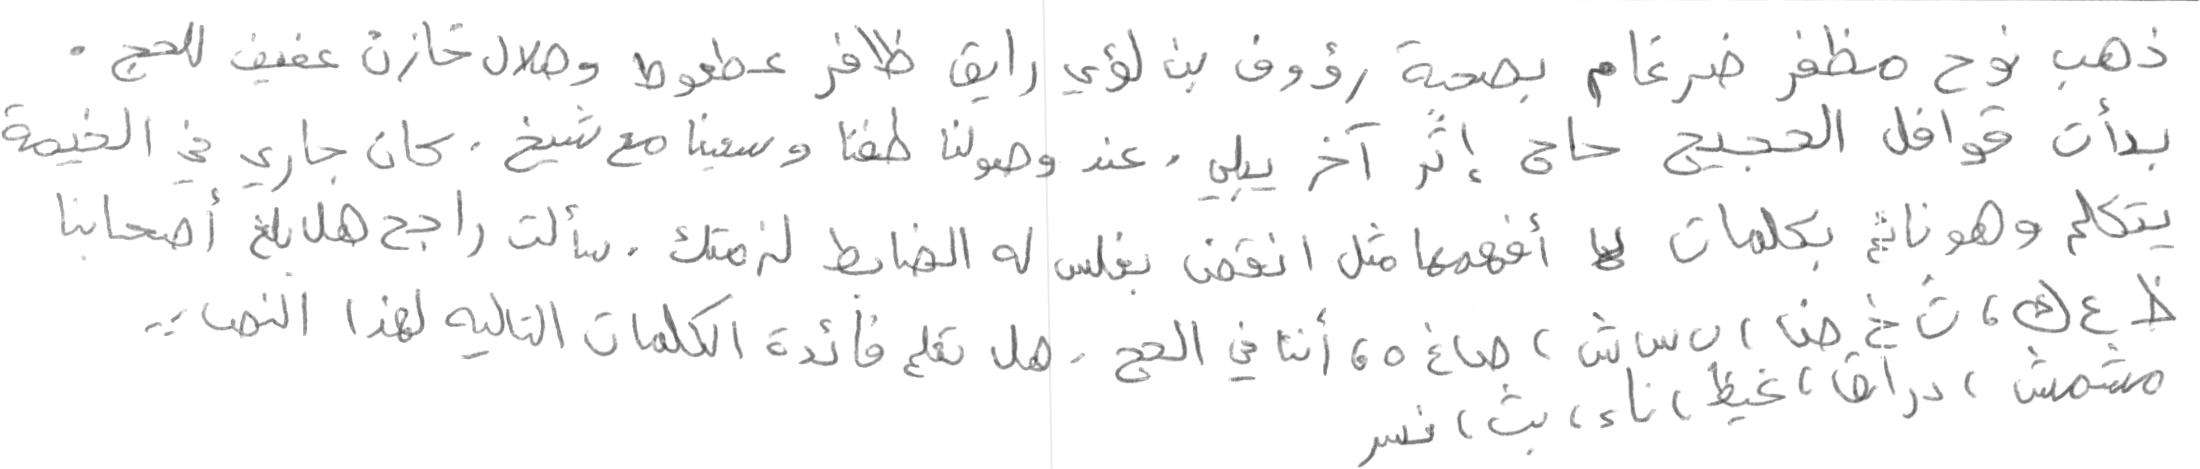 ذهب نوح مظفر ضرغام بصحبة رؤوف بن لؤي رايق ظافر عطعوط وهلال خازن عفيف للحج .
بدأت قوافل الحجيج حاج إثر آخر يلبي . عند وصولنا طفنا وسعينا مع شيخ . كان جاري في الخيمة
يتكلم وهو نائم بكلمات لا أفهمها مثل انقض بغلس له الضابط لزمتك . سألت راجح هل بلغ أصحابنا
ظ ع ك ، ث خ ض ، ن س ش ، ص غ ه ، أننا في الحج . هل تعلم فائدة الكلمات التالية لهذا النص :-
مشمش ، دراق ، غيظ ، ناء ، بث ، فسر